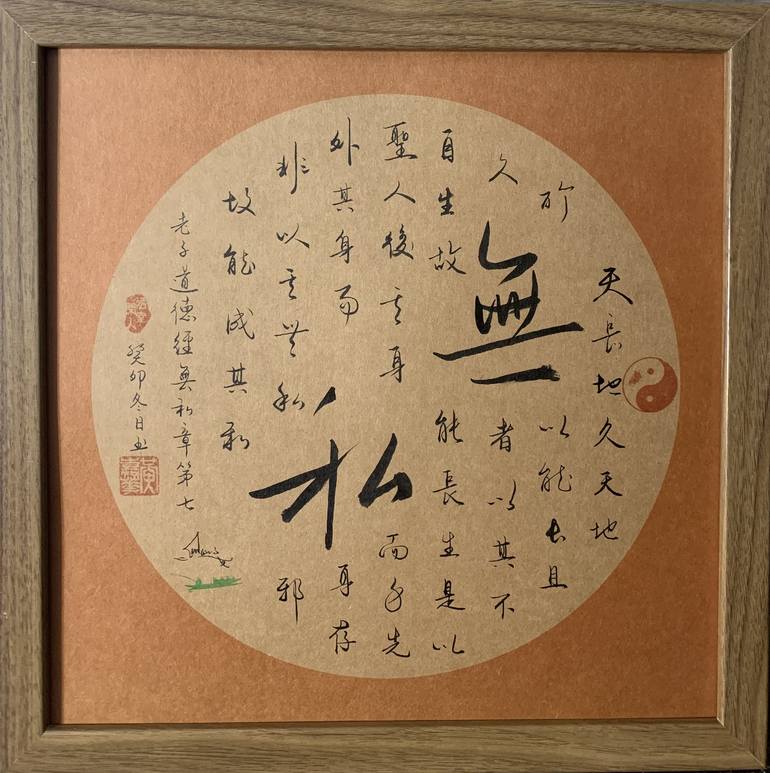 天長地久天地
所以能長且
久者以其不
自生故能長生是以
聖人後其身而身先
外其身而身存
非以其無私邪
故能成其私
無私
老子道德經無私章第七
癸卯冬日书